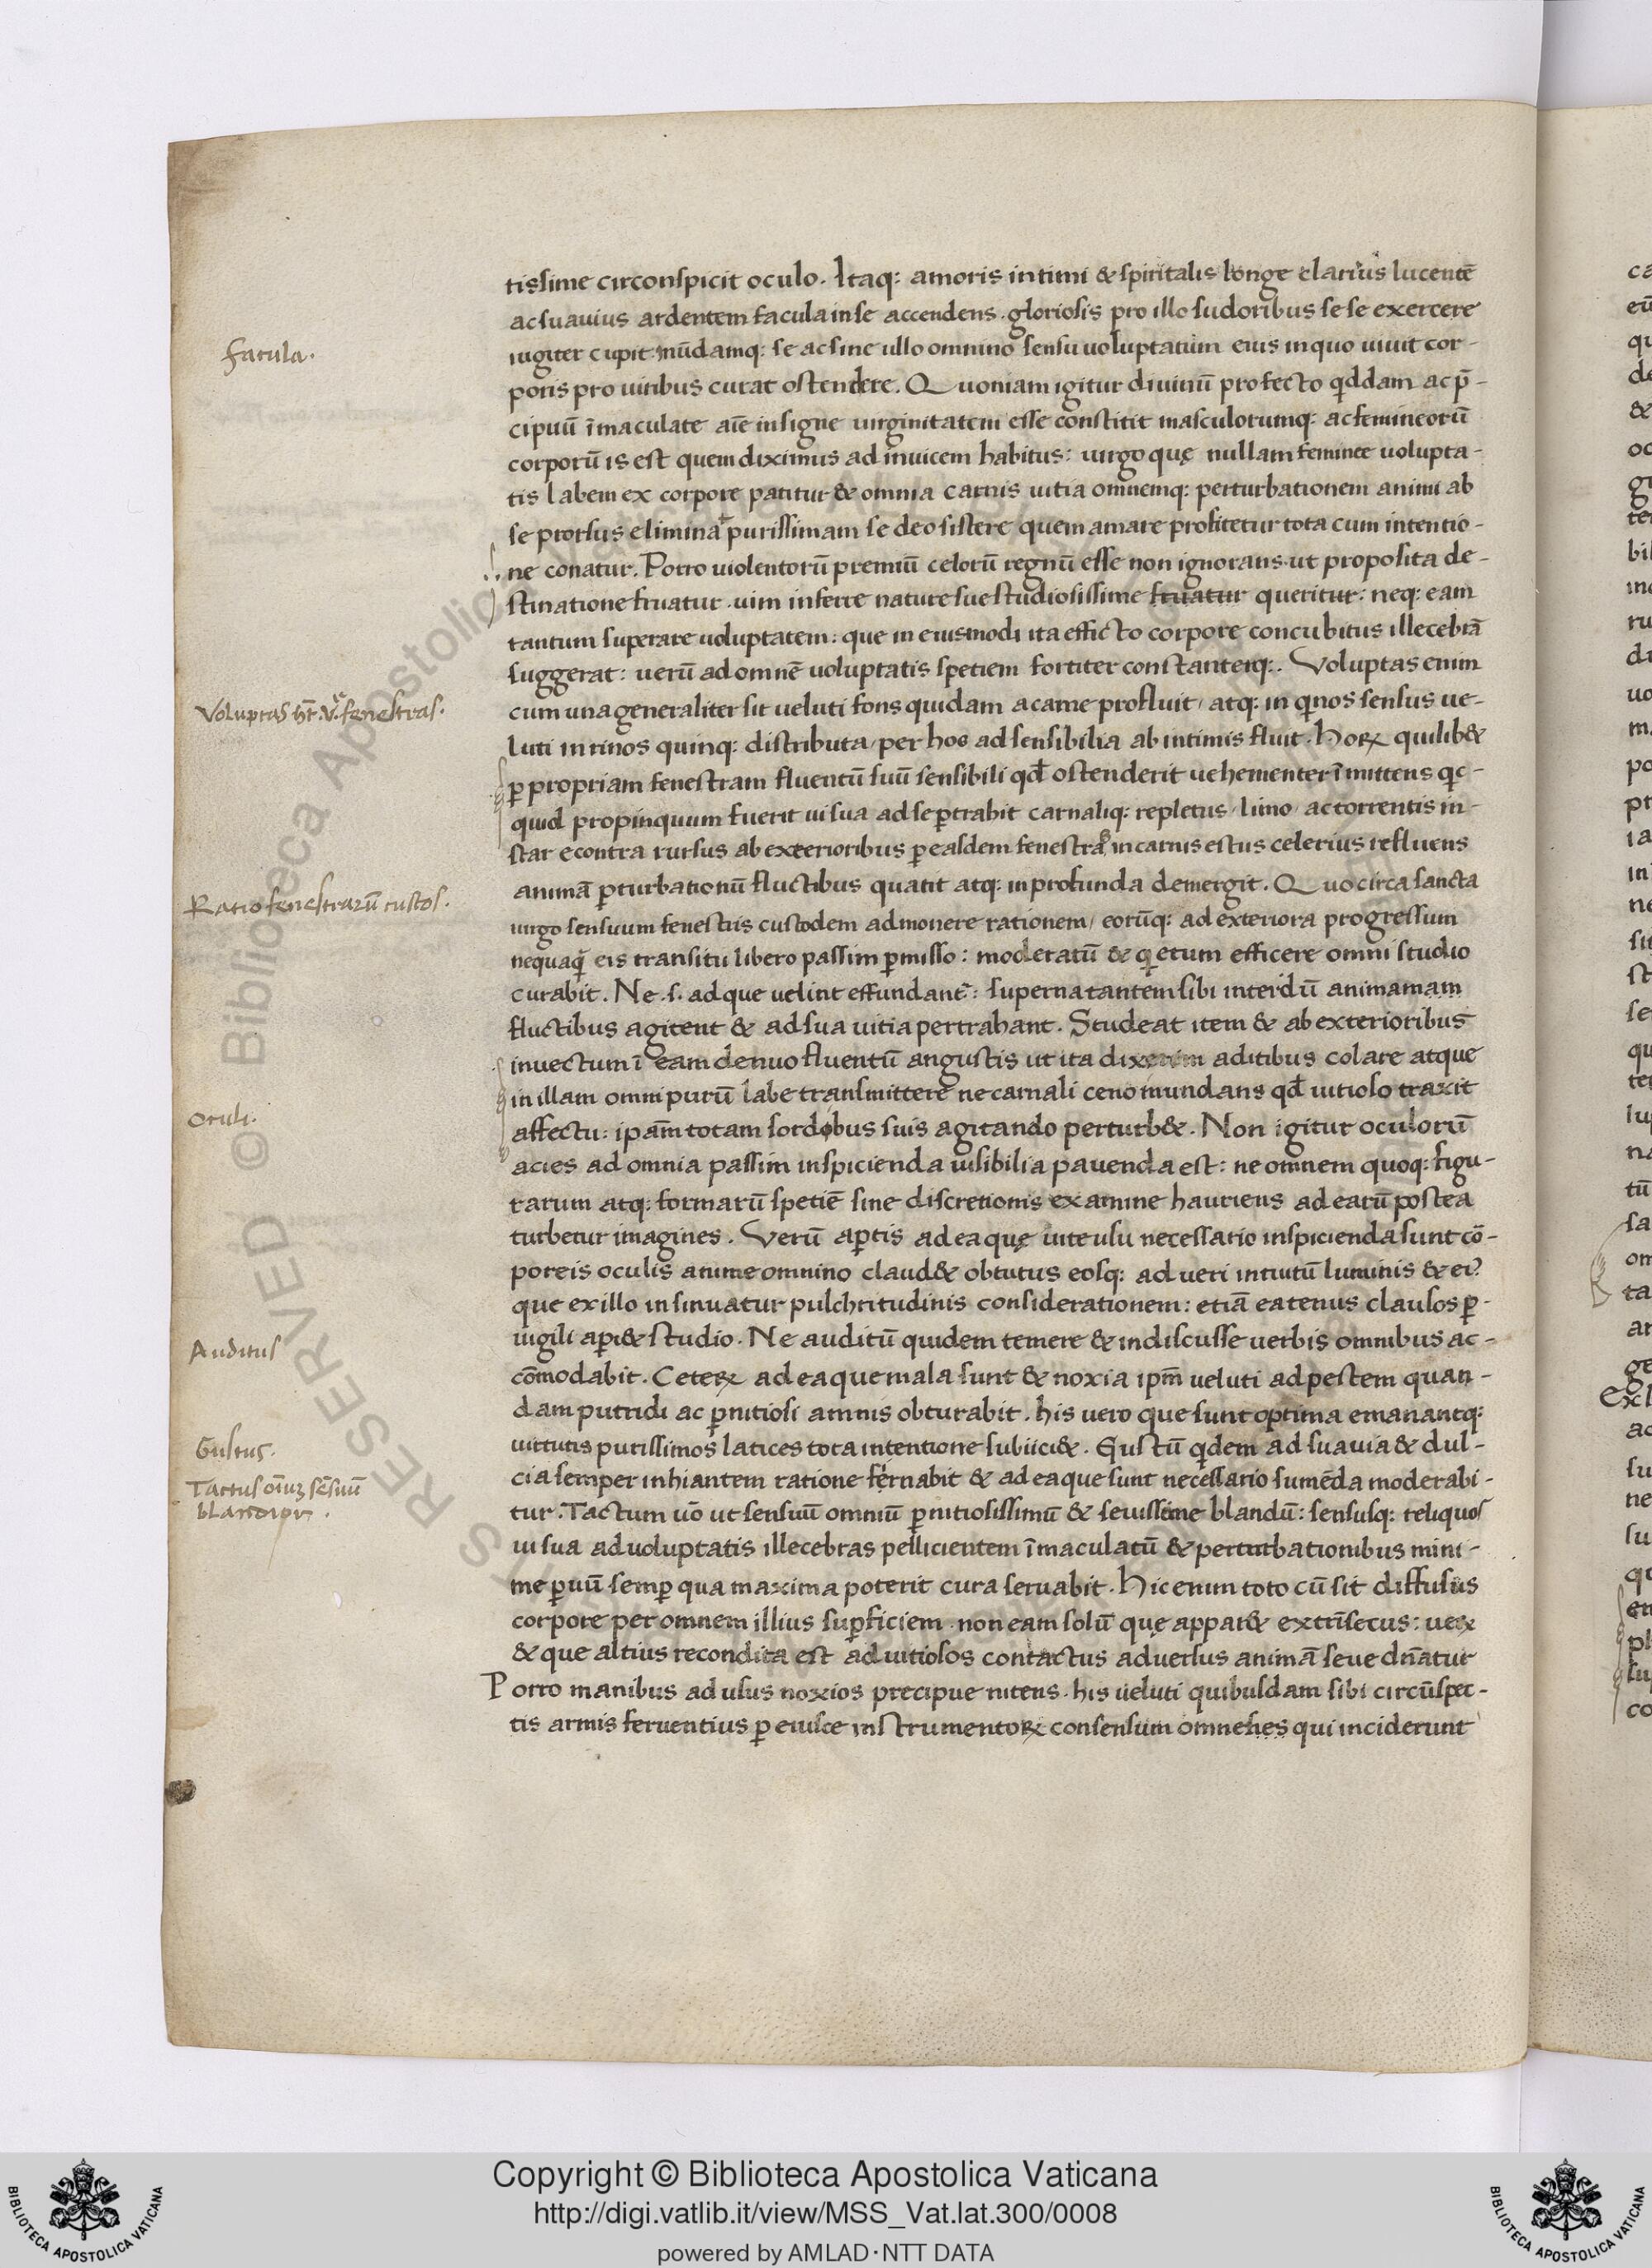 tissime circonspicit oculo. Itaq: amoris intimi & spiritalis longe clarius lucentē
ac suauius ardentem facula in se accendens. gloriosis pro illo sudoribus se se exercere
iugiter cupit: mūdamq: se ac sine ullo omnino sensu uoluptatum eius in quo uiuit cor-
poris pro uiribus curat ostendere. Quoniam igitur diuinū profecto qddam ac p̄-
cipuū īmaculate aīe insigne uirginitatem esse constitit masculorumq: ac femineorū
corporū is est quem diximus ad inuicem habitus: uirgo quę nullam feminee uolupta-
tis labem ex corpore patitur & omnia carnis uitia omnemq: perturbationem animi ab
se prorsus elimināt purissimam se deo sistere quem amare profitetur tota cum intentio-
ne conatur. Porro uiolentorū premiū celorū regnū esse non ignorans. ut proposita de-
stinatione fruatur. uim inferre nature sue studiosissime fruatur queritur: neq: eam
tantum superare uoluptatem: que in eiusmodi ita efficto corpore concubitus illecebrā
suggerat: uerū ad omnē uoluptatis spetiem fortiter constanterq:. Voluptas enim
cum una generaliter sit ueluti fons quidam a carne profluit/ atq: in qnos sensus ue-
luti in riuos quinq: distributa/ per hos ad sensibilia ab intimis fluit. Hoꝝ quilib&
ꝑ propriam fenestram fluentū suū sensibili qđ ostenderit uehementer īmittens qc-
quid propinquum fuerit ui sua ad se ꝑtrabit carnaliq: repletus/ limo/ ac torrentis in-
star econtra rursus ab exterioribus ꝑ easdem fenestras in carnis estus celerius refluens
animā ꝑturbationū fluctibus quatit atq: in profunda demergit. Quo circa sancta
uirgo sensuum fenestris custodem admonere rationem/ eorūq: ad exteriora progressum
nequaq̄ eis transitu libero passim ꝑmisso: moderatū & qetum efficere omni studio
curabit. Ne .s. ad que uelint effundant̄: supernatantem sibi interdū animamam
fluctibus agitent & ad sua uitia pertrahant. Studeat item & ab exterioribus
inuectum ī eam denuo fluentū angustis ut ita dixerim aditibus colare atque
in illam omni purū labe transmittere ne carnali ceno mundans qđ uitioso traxit
affectu: ipām totam sordibus suis agitando perturb&. Non igitur oculorū
acies ad omnia passim inspicienda uisibilia pauenda est: ne omnem quoq: figu-
rarum atq: formarū spetiē sine discretionis examine hauriens ad earū postea
turbetur imagines. Verū aptis ad ea quę uite usu necessario inspicienda sunt cō-
poreis oculis anime omnino claud& obtutus eosq: ad ueri intuitū luminis & ei?
que ex illo insinuatur pulchritudinis considerationem: etiā eatenus clausos ꝑ-
uigili api& studio. Ne auditū quidem temere & indiscusse uerbis omnibus ac-
cōmodabit. Ceteꝝ ad ea que mala sunt & noxia ipm̄ ueluti ad pestem quan-
dam putridi ac ꝑnitiosi amnis obturabit. his uero que sunt optima emanantq:
uirtutis purissimos latices tota intentione subiici&. Gustū qdem ad suauia & dul-
cia semper inhiantem ratione frenabit & ad ea que sunt necessario sumēda moderabi-
tur. Tactum uō ut sensuū omniū ꝑnitiosissimū & seuissime blandū: sensusq: reliquos
ui sua ad uoluptatis illecebras pellicientem īmaculatū & perturbationibus mini-
me ꝑuiū semꝑ qua maxima poterit cura seruabit. Hic enim toto cū sit diffusus
corpore per omnem illius suꝑficiem. non eam solū quę appar& extrīsecus: ueꝝ
& que altius recondita est ad uitiosos contactus aduersus animā seue dn̄atur
Porro manibus ad usus noxios precipue nitens. his ueluti quibusdam sibi circūspec-
tis armis feruentius ꝑ eiusce instrumentoꝝ consensum omnes hes qui inciderunt
facula.
Voluptas hr̄ .v. fenestras.
Ratio fenestrarū custos.
Oculi.
Auditus
Gustus.
Tactus oīuz sēsuū
blandior.
Copyright © Biblioteca Apostolica Vaticana
http://digi.vatlib.it/view/MSS_Vat.lat.300/0008
powered by AMLAD·NTT DATA
BIBLIOTECA APOSTOLICA VATICANA
BIBLIOTECA APOSTOLICA VATICANA